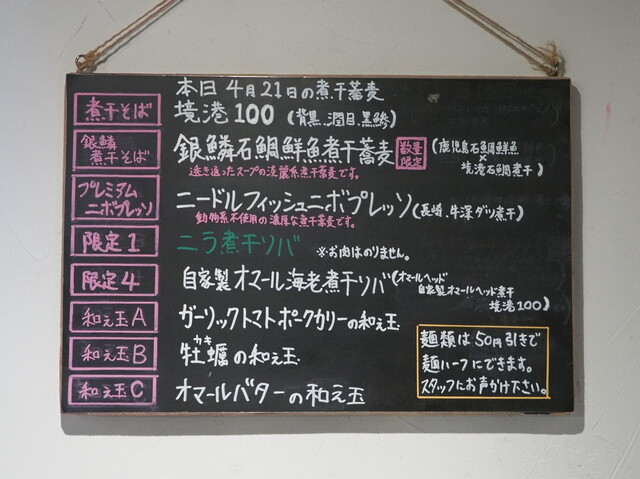 本日 4月21日の煮干蕎麦
煮干そば 境港100 (背黒、潤目、黒鯵)
銀鱗煮干そば 銀鱗石鯛鮮魚煮干蕎麦 数量限定 (鹿児島石鯛鮮魚×境港石鯛煮干)
透き通ったスープの淡麗系煮干蕎麦です。
プレミアムニボプレッソ ニードルフィッシュニボプレッソ (長崎、牛深ダツ煮干)
動物系不使用の濃厚な煮干蕎麦です。
限定1 ニラ煮干リバ ※お肉はのりません。
限定4 自家製オマール海老煮干リバ (オマールヘッド
自家製オマールヘッド煮干
境港100)
和え玉A ガーリックトマトポークカリーの和え玉
和え玉B 牡蠣の和え玉
カキ
和え玉C オマールバターの和え玉
麺類は50円引きで
麺ハーフにできます。
スタッフにお声かけ下さい。